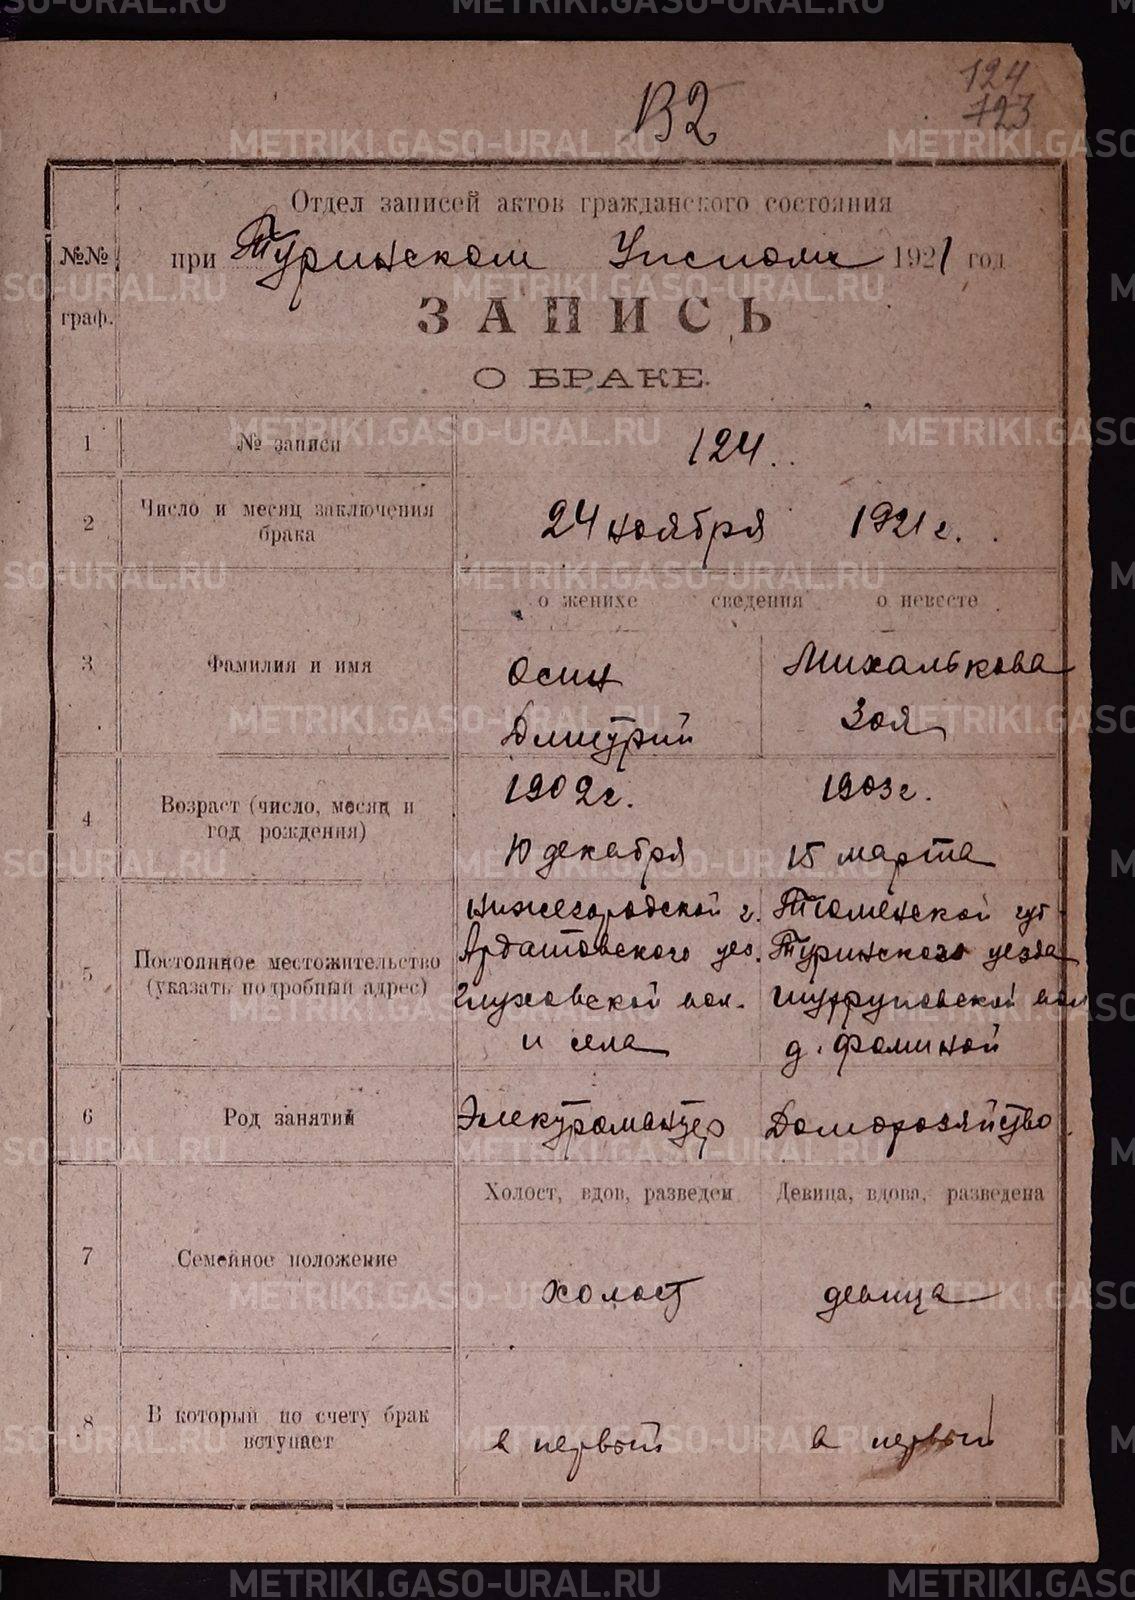 METRIKI.GASO-URAL.RU
124
123
В2
Отдел записей актов гражданского состояния
№№ граф.
при Туринском Уисполк 1921 год
ЗАПИСЬ
О БРАКЕ.
1 № записи 124.
2 Число и месяц заключения брака 24 ноября 1921 г.
о женихе сведения о невесте
3 Фамилия и имя
Осин Михалькова
Дмитрий Зоя
4 Возраст (число, месяц и год рождения)
1902 г. 1903 г.
10 декабря 15 марта
5 Постоянное местожительство (указать подробный адрес)
Нижегородской г. Тюменской губ.
Ардатовского уез. Туринского уезда
Глуховской вол. вол
и села д. Фоминой
6 Род занятий Электромантер Домохозяйство
Холост, вдов, разведен Девица, вдова, разведена
7 Семейное положение холост девица
8 В который по счету брак вступает в первый в первый